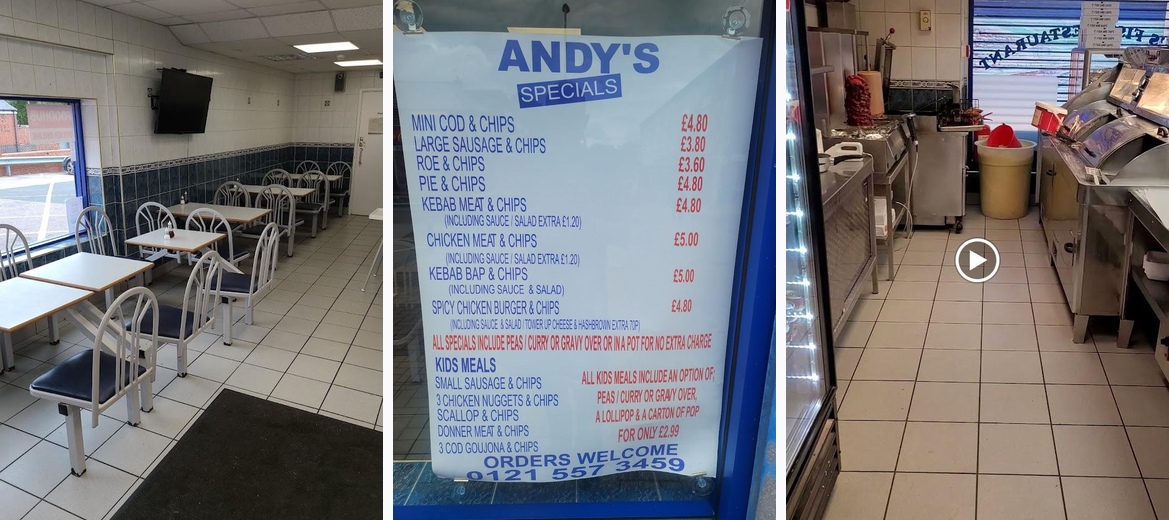 ANDY'S
SPECIALS
MINI COD & CHIPS £4.80
LARGE SAUSAGE & CHIPS £3.80
ROE & CHIPS £3.60
PIE & CHIPS £4.80
KEBAB MEAT & CHIPS £4.80
(INCLUDING SAUCE / SALAD EXTRA £1.20)
CHICKEN MEAT & CHIPS £5.00
(INCLUDING SAUCE / SALAD EXTRA £1.20)
KEBAB BAP & CHIPS £5.00
(INCLUDING SAUCE & SALAD)
SPICY CHICKEN BURGER & CHIPS £4.80
(INCLUDING SAUCE & SALAD / TOWER UP CHEESE & HASHBROWN EXTRA 70P)
ALL SPECIALS INCLUDE PEAS / CURRY OR GRAVY OVER OR IN A POT FOR NO EXTRA CHARGE
KIDS MEALS
SMALL SAUSAGE & CHIPS
3 CHICKEN NUGGETS & CHIPS
SCALLOP & CHIPS
DONNER MEAT & CHIPS
3 COD GOUJONA & CHIPS
ALL KIDS MEALS INCLUDE AN OPTION OF;
PEAS / CURRY OR GRAVY OVER,
A LOLLIPOP & A CARTON OF POP
FOR ONLY £2.99
ORDERS WELCOME
0121 557 3459
RESTAURANT